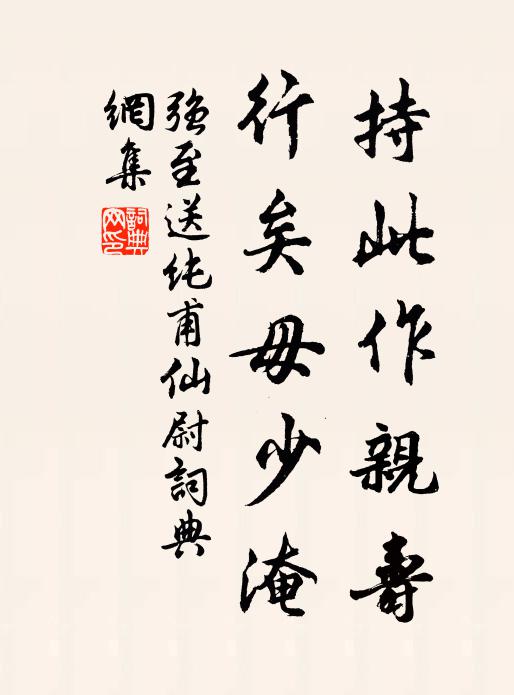 持此作親壽
行矣毋少淹
強至送純甫仙尉詞典
網集
詞典網印